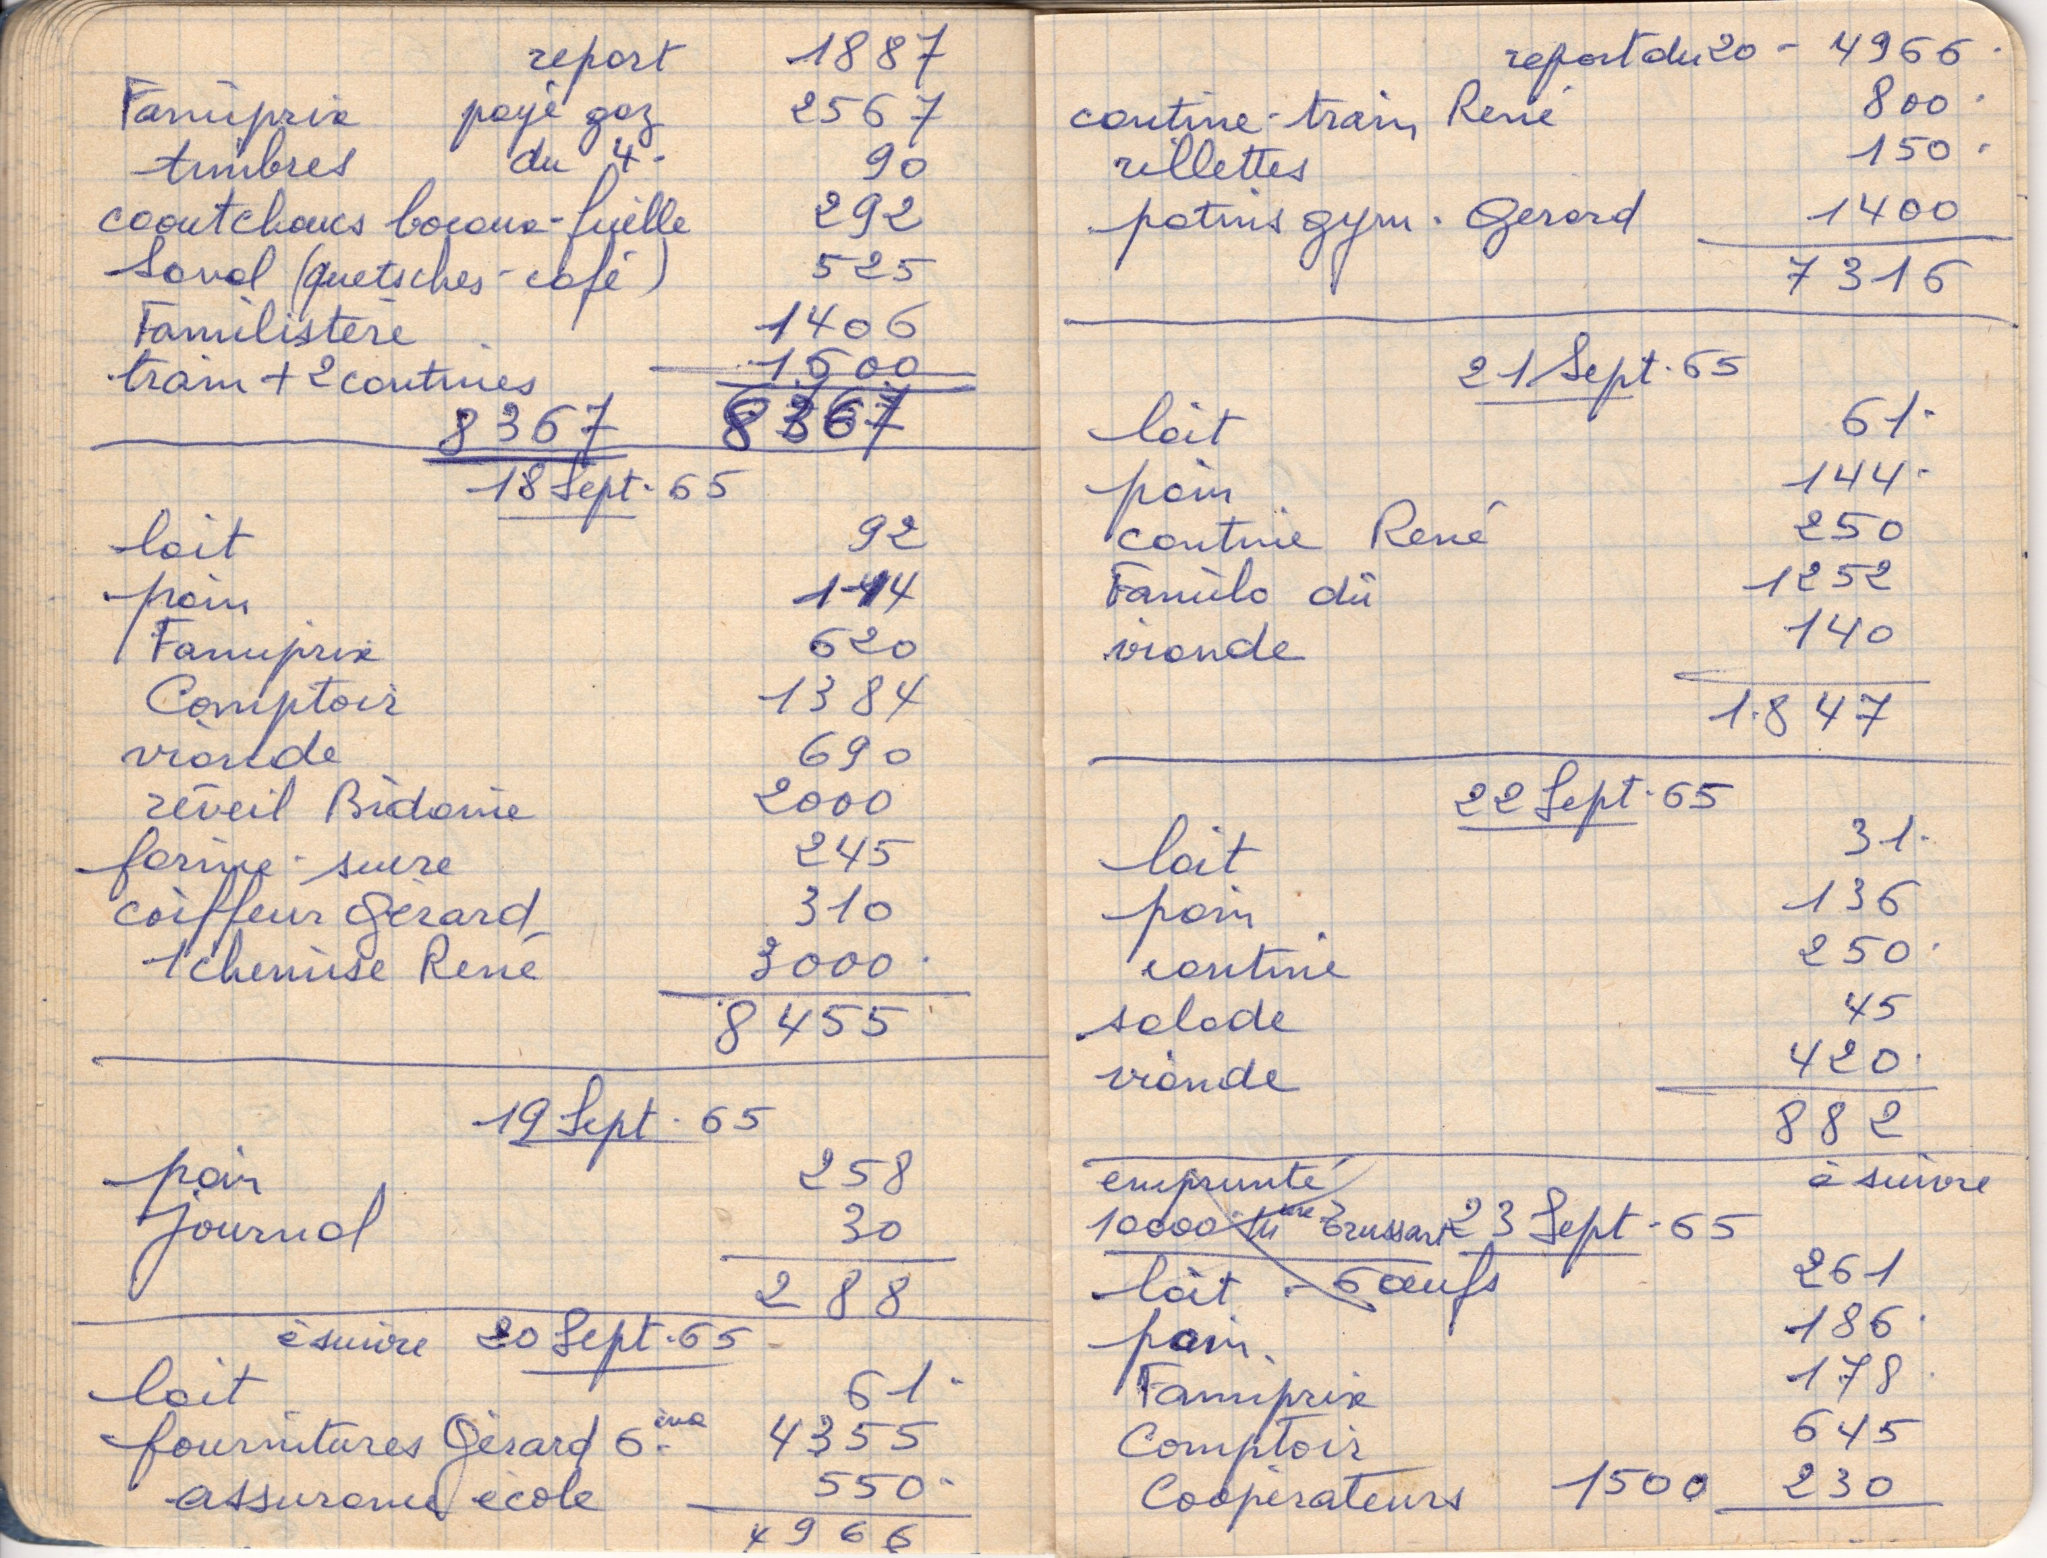 report 1887
Famiprix payé gaz 2567
timbres du 4. 90
caoutchoucs bocaux - ficelle 292
Saval (quetsches - café) 525
Familistère 1406
train + 2 cantines 1600
8367 8367
18 Sept. 65
lait 92
pain 144
Famiprix 620
Comptoir 1384
viande 690
réveil Bidaine 2000
farine - sucre 245
coiffeur Gérard 310
1 chemise René 3000.
8455
19 Sept. 65
pain 258
journal 30
288
à suivre 20 Sept. 65
lait 61.
fournitures Gérard 6ème 4355
assurance école 550.
4966
report du 20 - 4966.
cantine - train René 800.
rillettes 150.
patins gym. Gérard 1400
7316
21 Sept. 65
lait 61.
pain 144.
cantine René 250
Familo dû 1252
viande 140
1.847
22 Sept. 65
lait 31.
pain 136
cantine 250.
salade 45
viande 420.
882
emprunté à suivre
10000 Mme Trussart 23 Sept. 65
lait - 6 œufs 261
pain. 186.
Famiprix 178.
Comptoir 645
Coopérateurs 1500 230